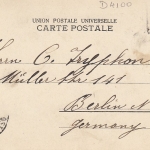 D4100
UNION POSTALE UNIVERSELLE
CARTE POSTALE
Herrn C. Tryphon
Müller Str 141
Berlin N
Germany